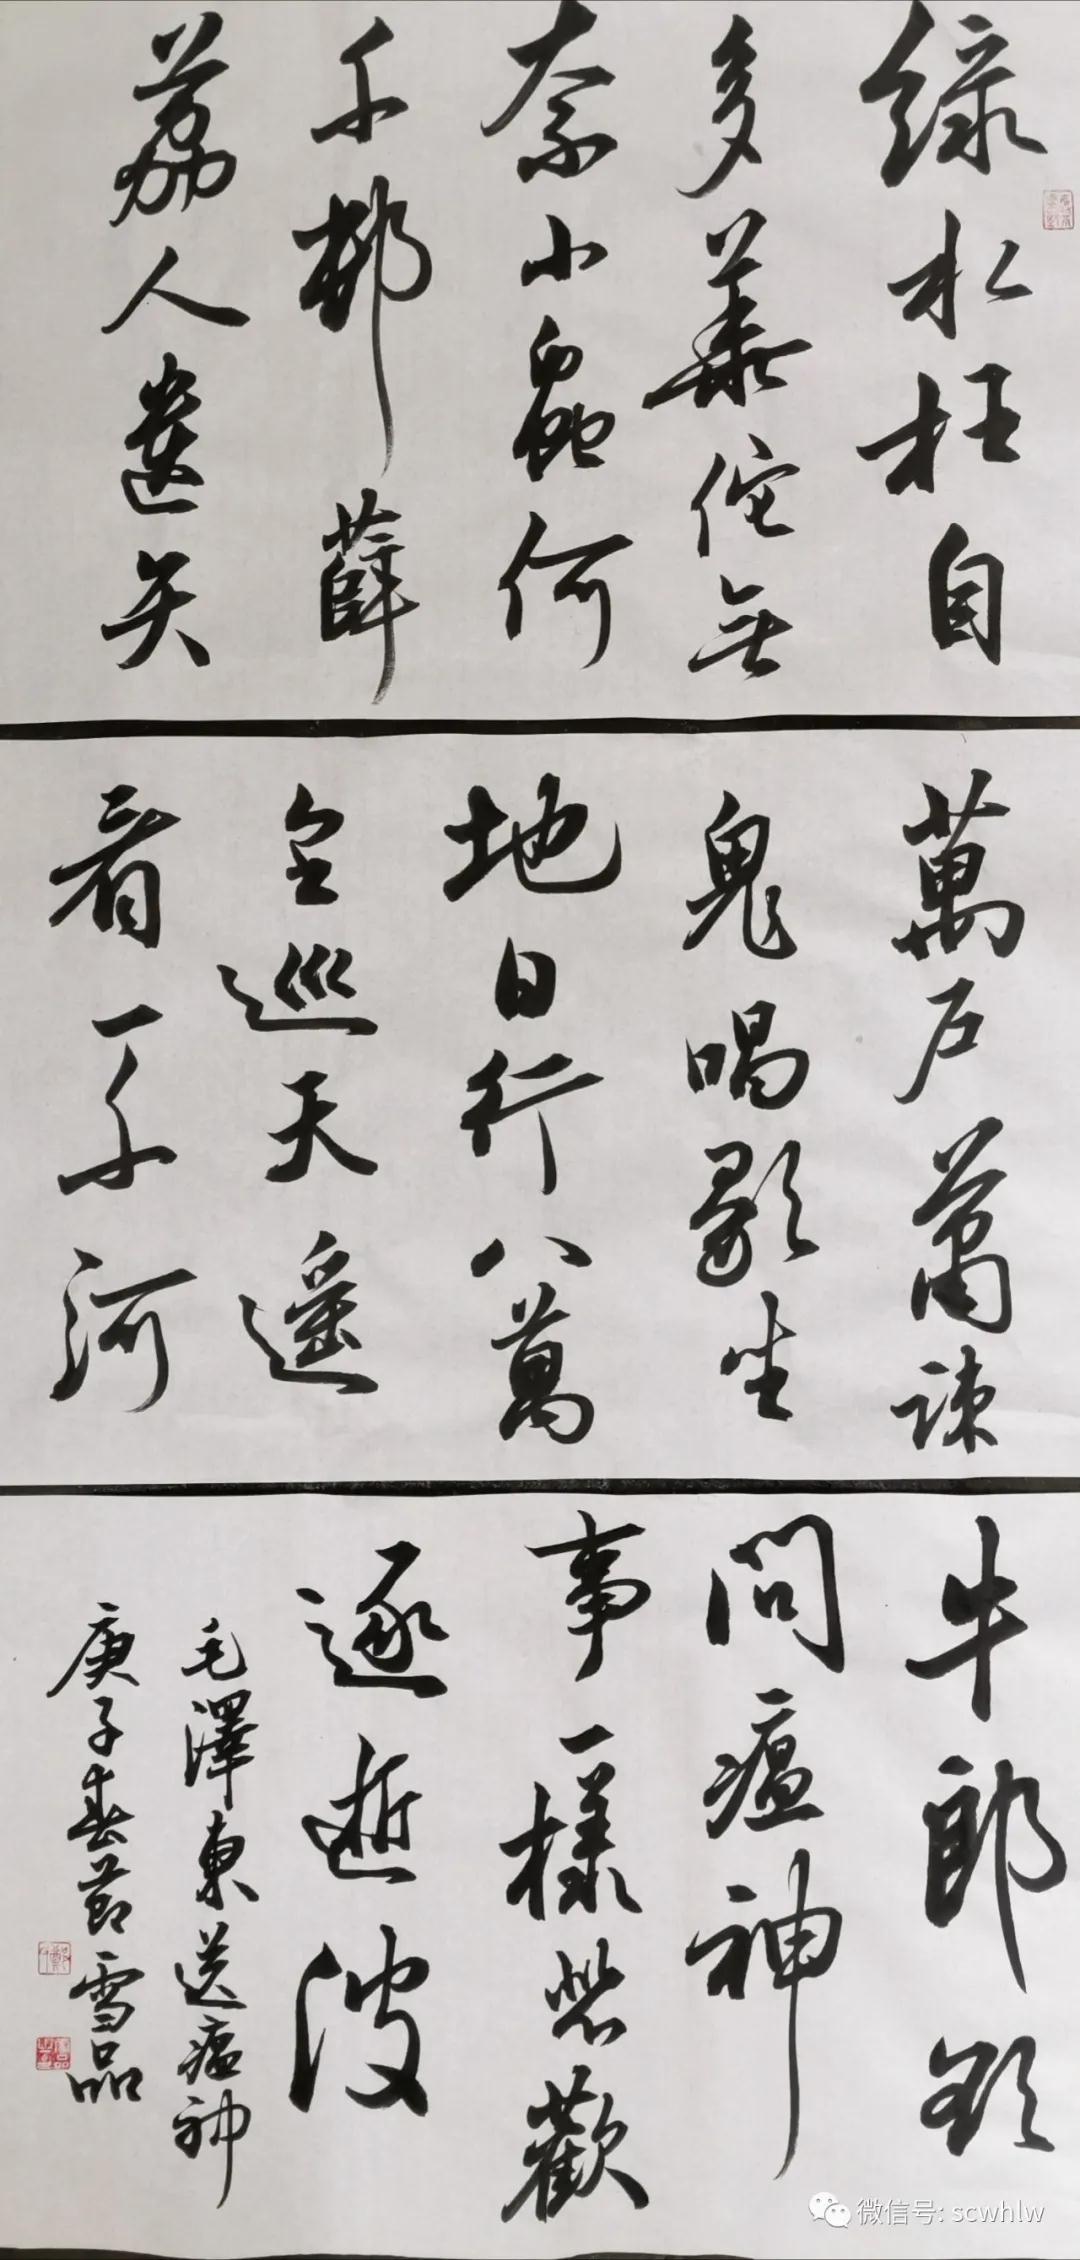 綠水枉自
多華佗無
奈小蟲何
千邨薜
荔人遺矢
萬戶蕭疎
鬼唱歌坐
地日行八萬
里巡天遙
看一千河
牛郎欲
問瘟神
事一樣悲歡
逐逝波
毛澤東送瘟神
庚子春節雪品
微信号: scwhlw